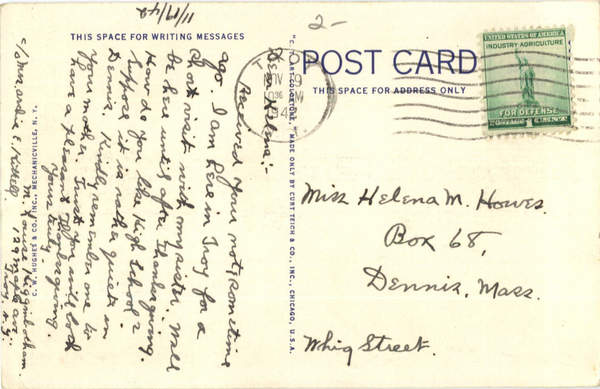 11/19/42
2-
THIS SPACE FOR WRITING MESSAGES
POST CARD
THIS SPACE FOR ADDRESS ONLY
UNITED STATES OF AMERICA
INDUSTRY AGRICULTURE
FOR DEFENSE
Dear Helena:-
Received your note sometime
ago. I am here in Troy for a
short visit with my sister. Will
be here until after Thanksgiving.
How do you like High School?
Suppose it is rather quiet in
Dennis. Kindly remember me to
your mother. Trust you will both
have a pleasant Thanksgiving.
Yours truly,
M. Louise Higginbotham
Troy, N.Y.
C. W. HUGHES & CO., INC., MECHANICVILLE, N. Y.
"C. T. ART-COLORTONE," MADE ONLY BY CURT TEICH & CO., INC., CHICAGO, U.S.A.
Miss Helena M. Howes
Box 68,
Dennis, Mass.
Whig Street.